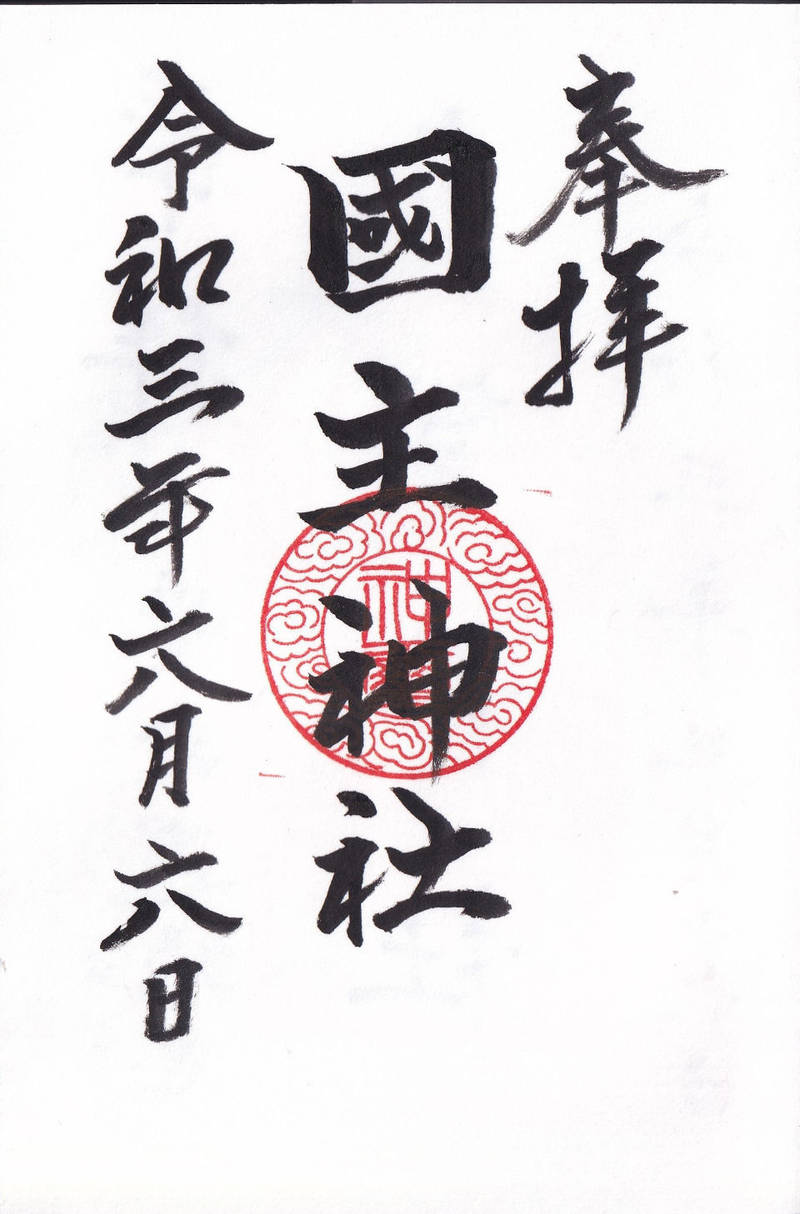 奉拝
國主神社
令和三年六月六日